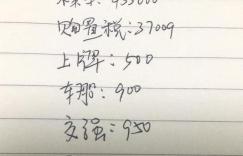 购置税:37009
上牌:500
车船:900
交强:950